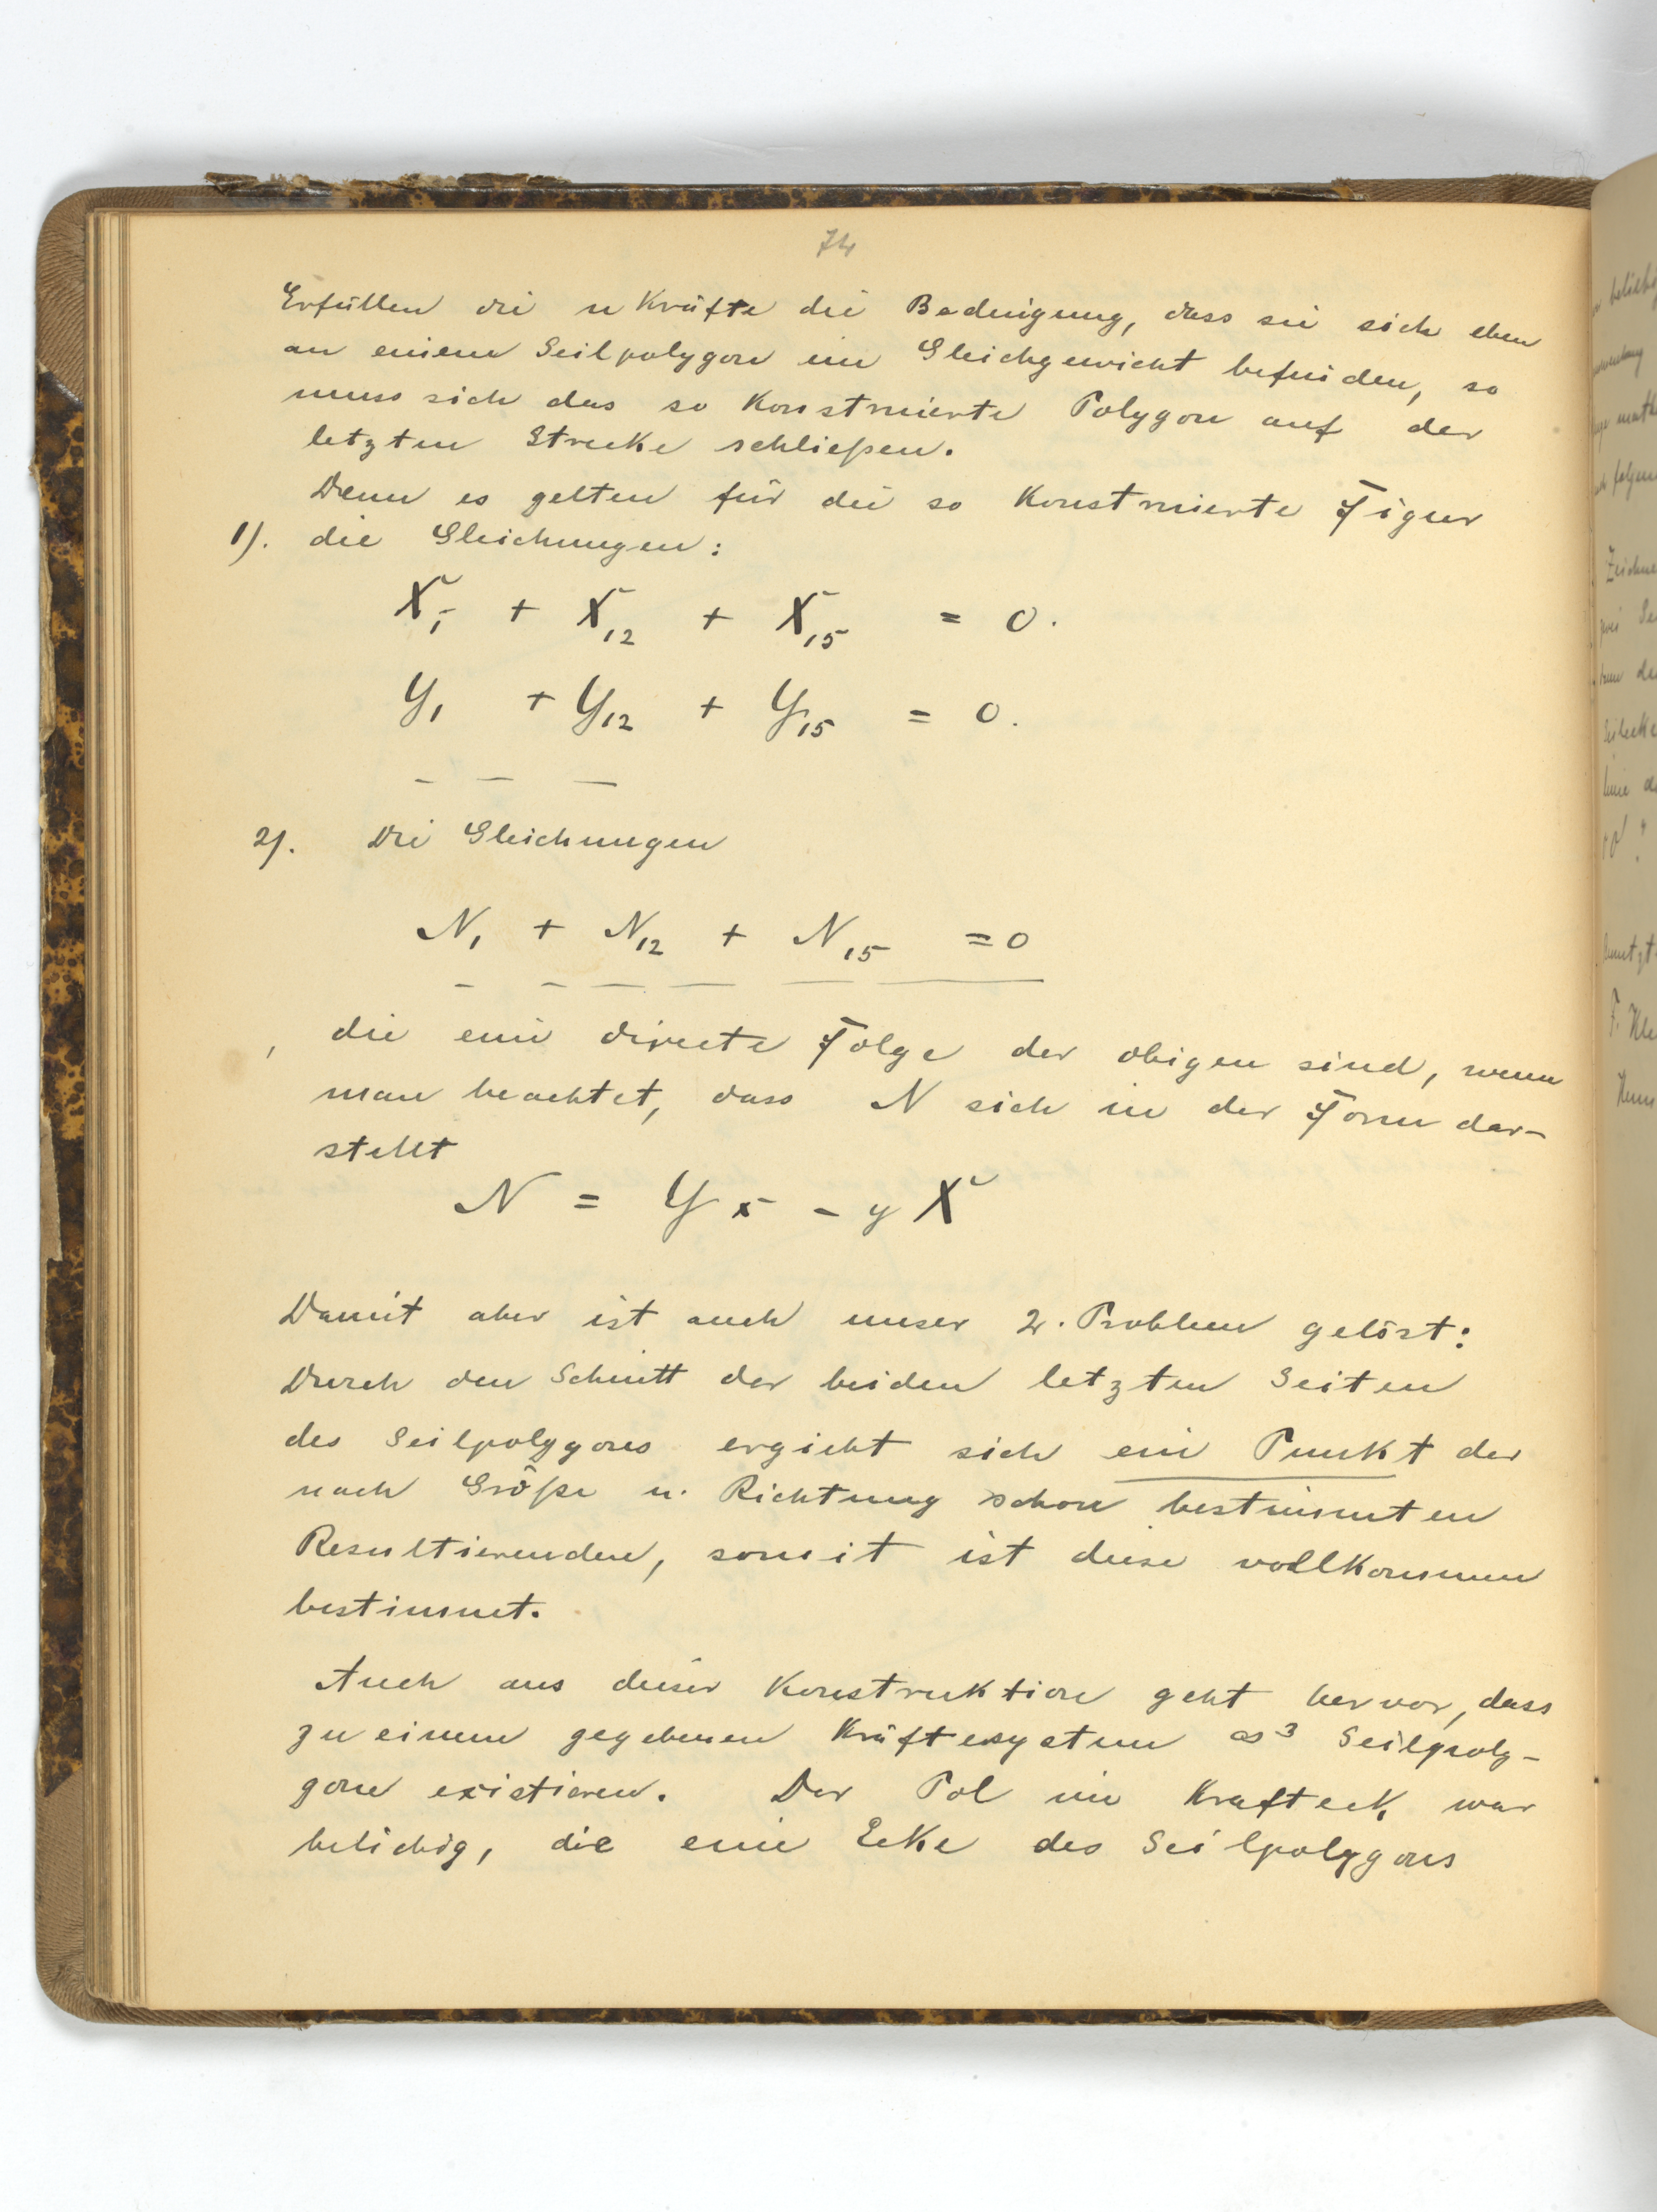 74
Erfüllen die n Kräfte die Bedingung, dass sie sich eben
an einem Seilpolygon im Gleichgewicht befinden, so
muss sich das so Konstruierte Polygon auf der
letzten Strecke schließen.
Denn es gelten für die so Konstruierte Figur
1). die Gleichungen:
X₁ + X₁₂ + X₁₅ = 0.
Y₁ + Y₁₂ + Y₁₅ = 0.
2). Die Gleichungen
N₁ + N₁₂ + N₁₅ = 0
die eine directe Folge der obigen sind, wenn
man beachtet, dass N sich in der Form dar-
stellt
N = Yx - yX
Damit aber ist auch unser 2. Problem gelöst:
Durch den Schnitt der beiden letzten Seiten
des Seilpolygons ergiebt sich ein Punkt der
nach Größe u. Richtung schon bestimmten
Resultierenden, somit ist diese vollkommen
bestimmt.
Auch aus dieser Konstruktion geht hervor, dass
zu einem gegebenen Kräftesystem ∞³ Seilpoly-
gone existieren. Der Pol im Krafteck war
beliebig, die eine Ecke des Seilpolygons